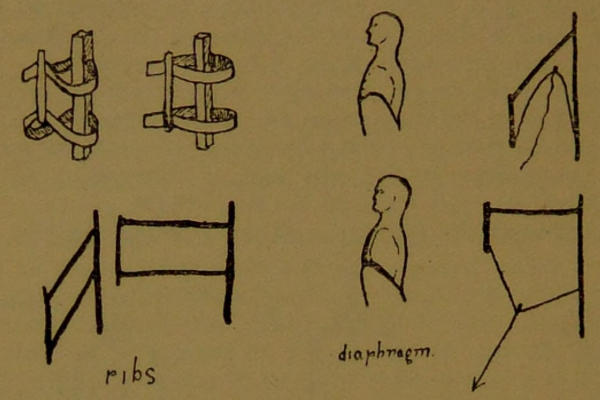 ribs
diaphragm.